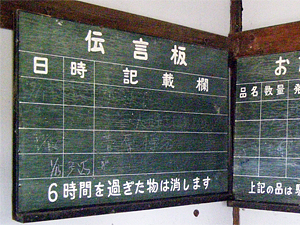 伝言板
日 時 記載欄
6時間を過ぎた物は消します
お
品名 数量 発
上記の品は